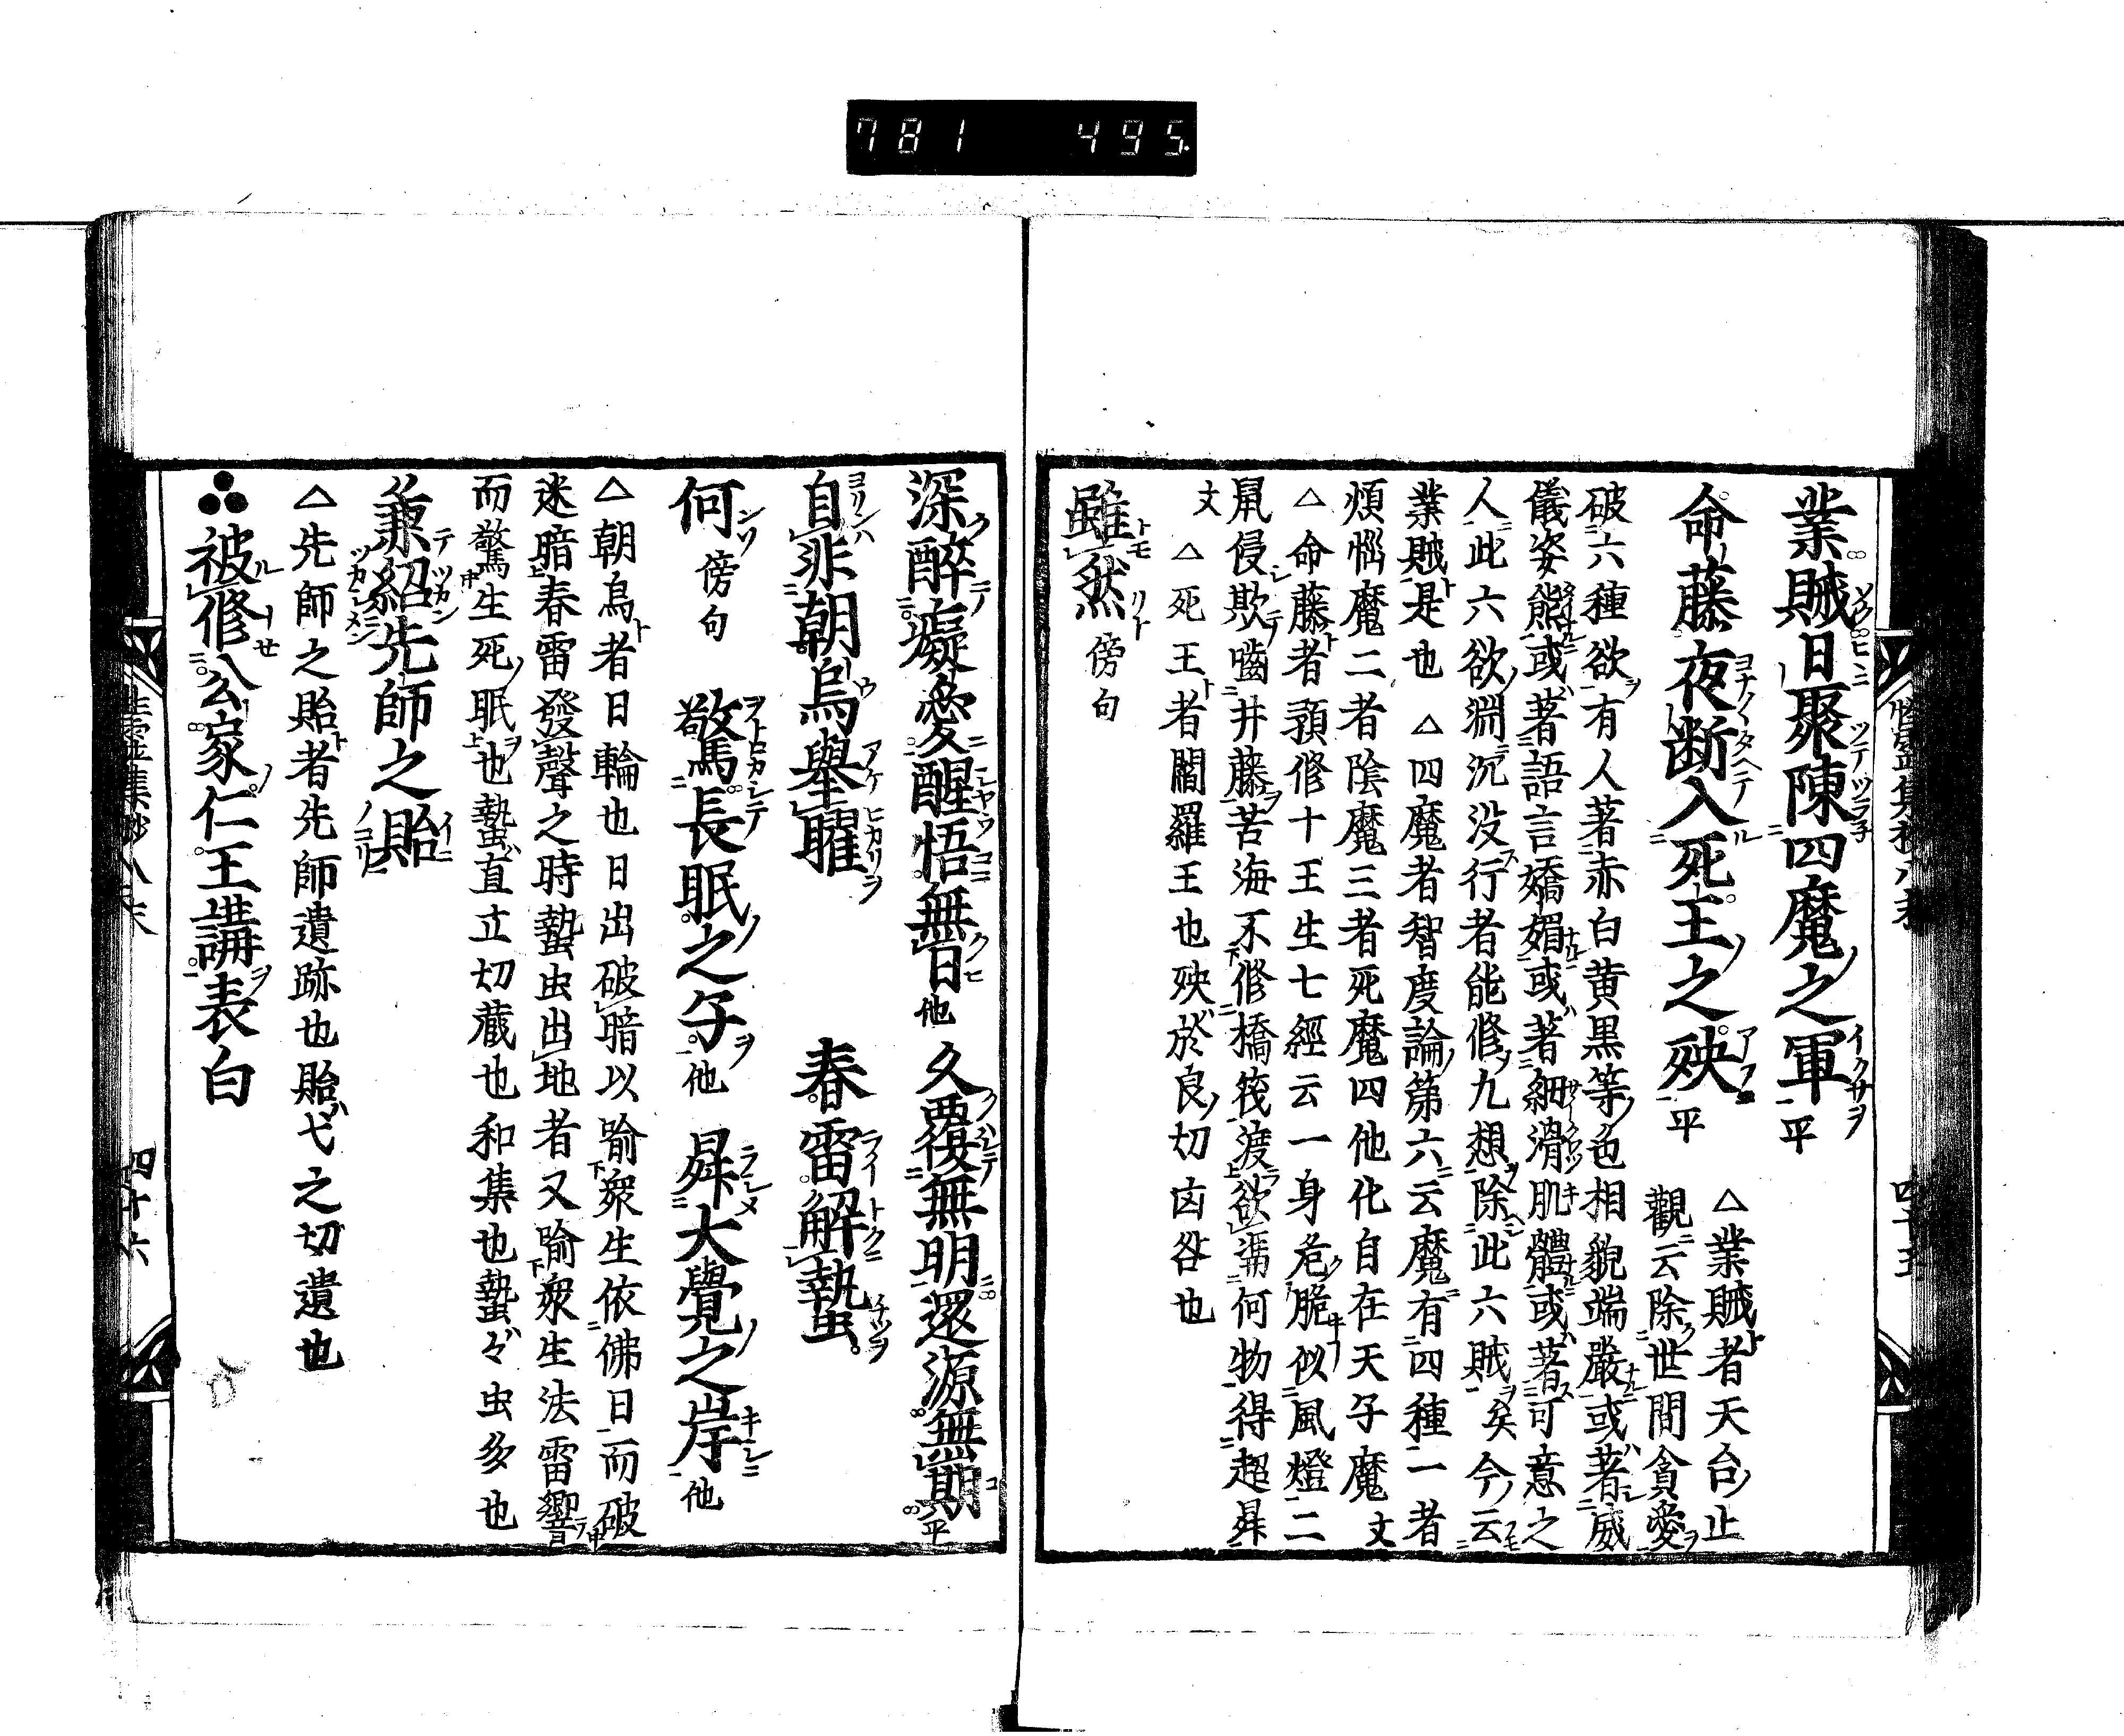 781 495
業賊日聚陳四魔之軍平
△業賊者天台止
命藤夜断入死王之殃平
觀云除世間貪愛
破六種欲有人著赤白黄黒等色相貌端嚴或著威
儀姿態或著語言嬌媚或著細滑肌體或著可意之
人此六欲淵沉没行者能修九想除此六賊矣今云
業賊是也 △四魔者智度論第六云魔有四種一者
煩惱魔二者陰魔三者死魔四他化自在天子魔文
△命藤者預修十王生七經云一身危脆似風燈二
鼠侵欺嚙井藤苦海不修橋筏渡欲憑何物得超昇
文 △死王者閻羅王也殃於良切凶咎也
雖然 傍句
四十五
深醉癡愛醒悟無日他 久覆無明還源無期平
自非朝烏擧曜 春雷解蟄
何 傍句 驚長眠之子他 昇大覺之岸他
△朝烏者日輪也日出破暗以喩衆生依佛日而破
迷暗春雷發聲之時蟄虫出地者又喩衆生法雷響
而驚生死眠也蟄直立切蔵也和集也蟄々虫多也
兼紹先師之貽
△先師之貽者先師遺跡也貽弋之切遺也
被修公家仁王講表白
四十六